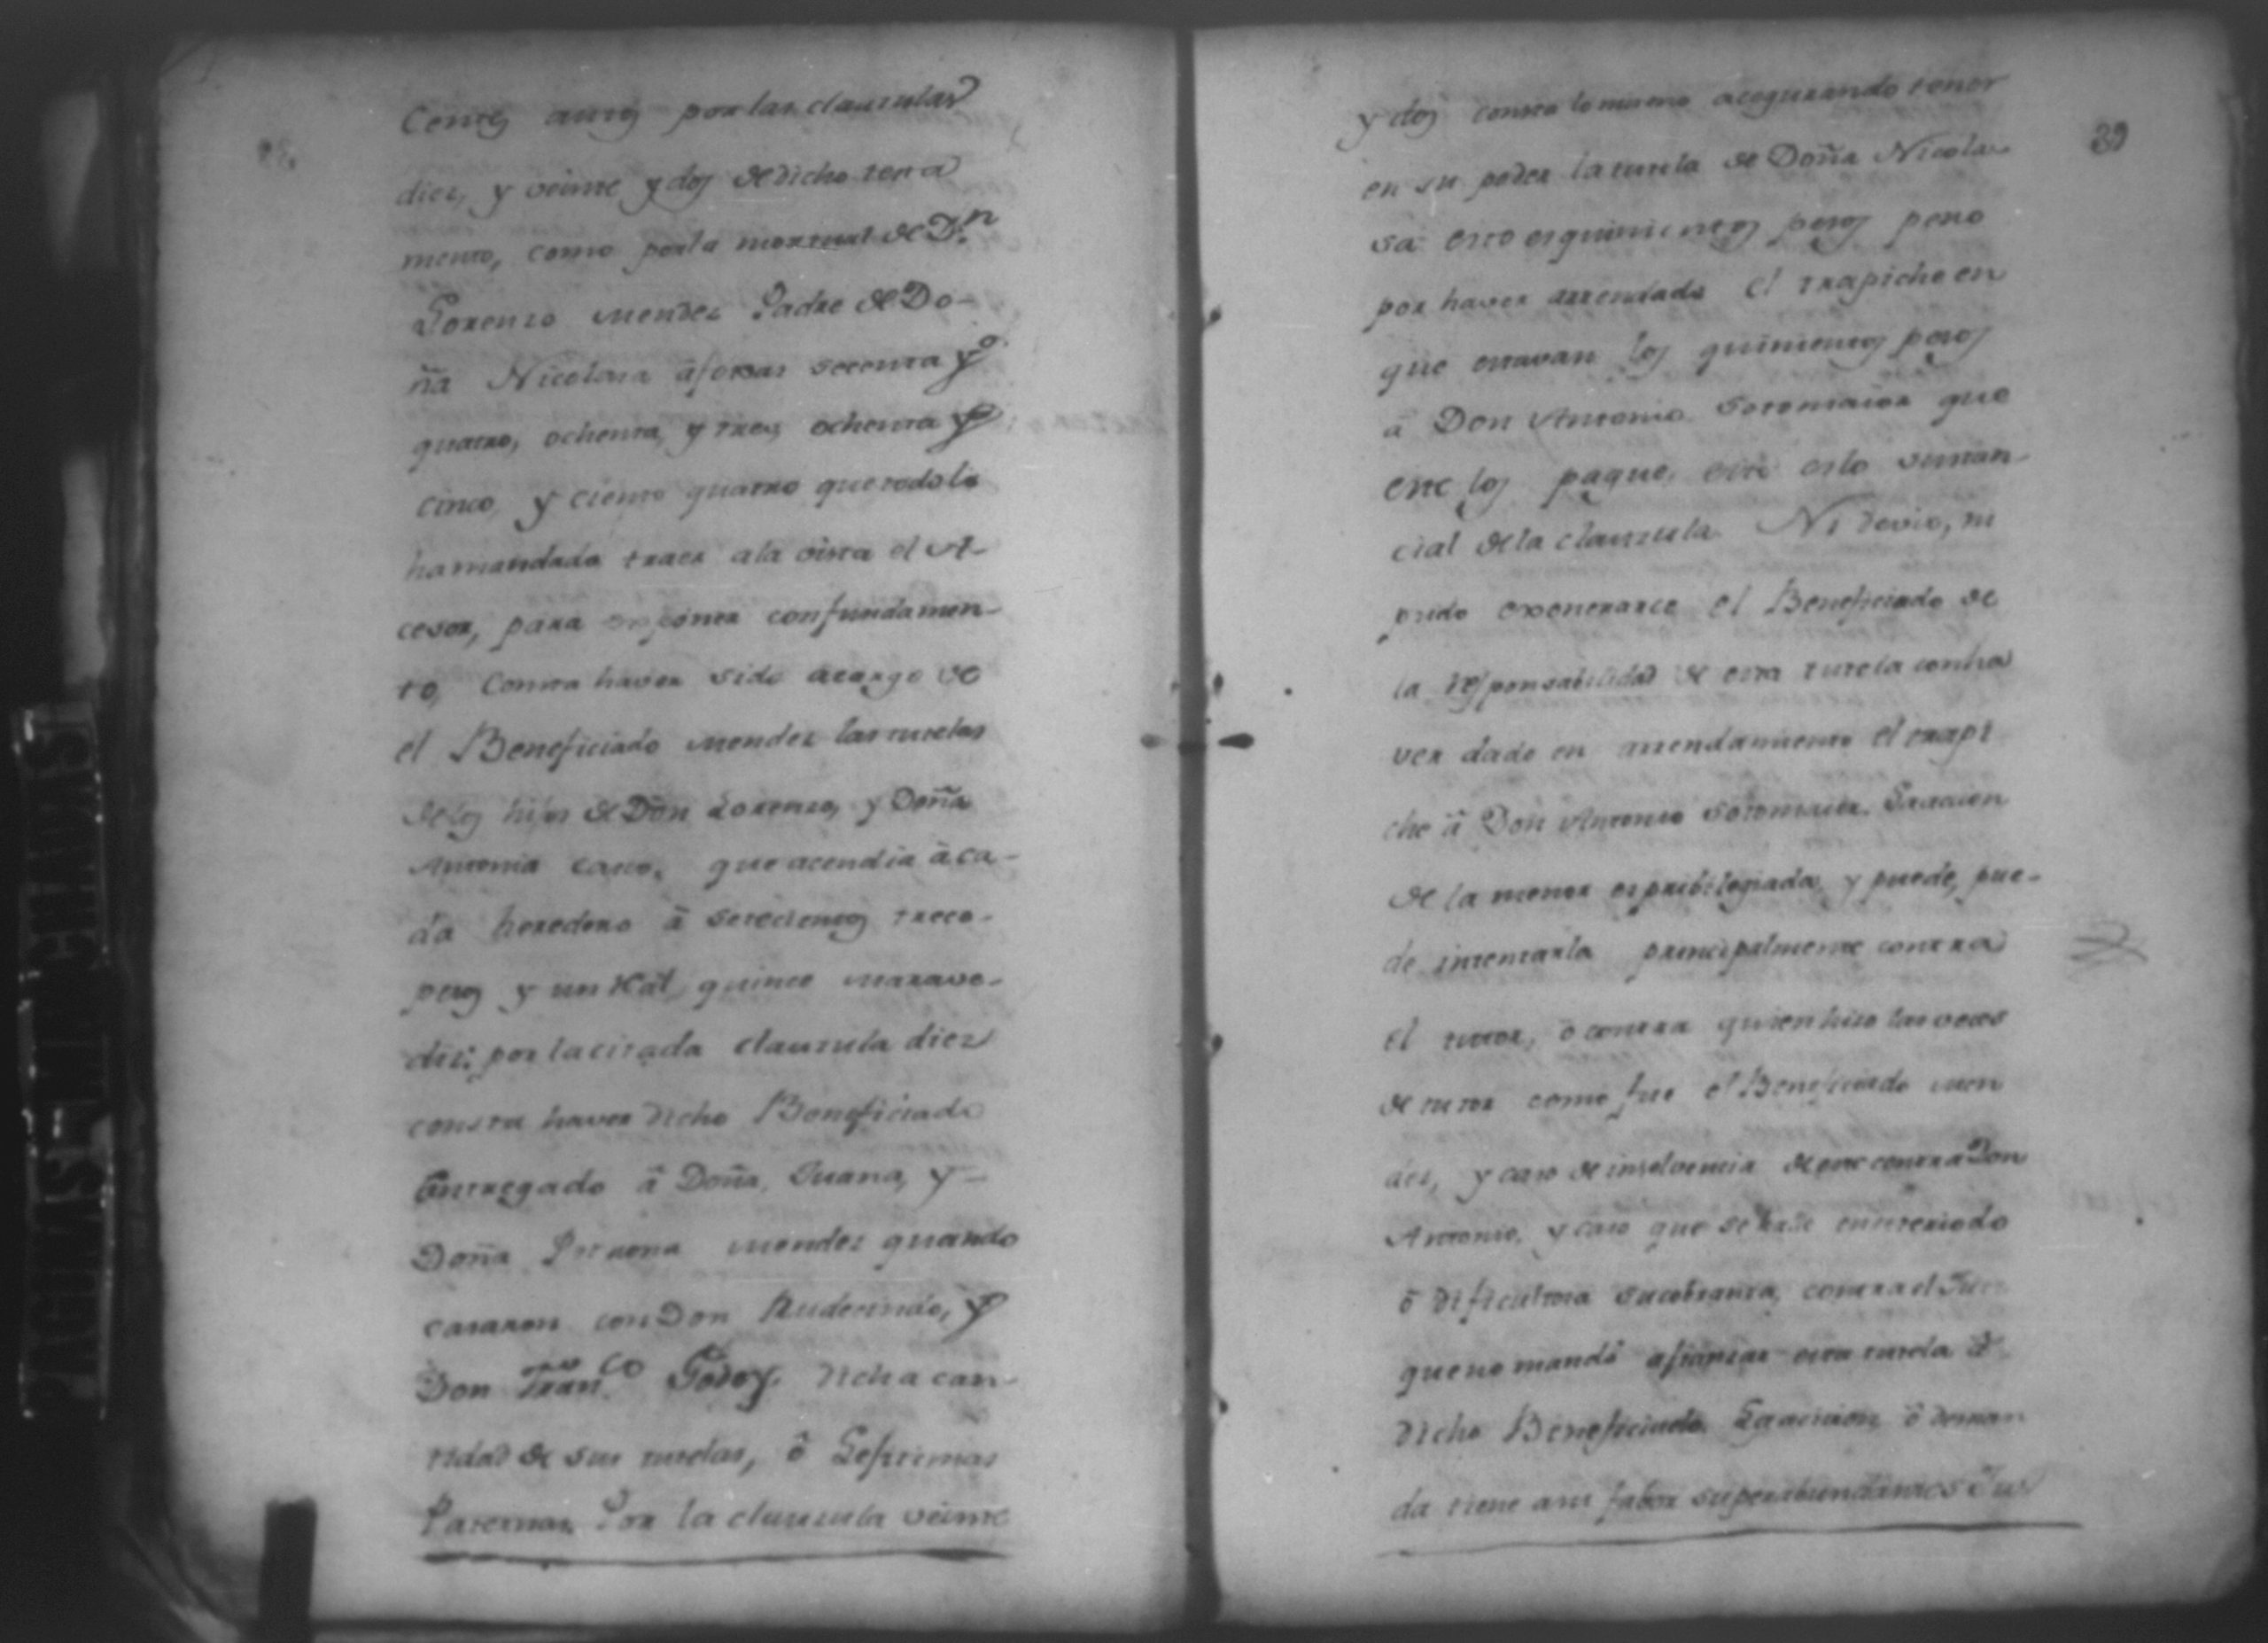 centes autos por las clauzulas
diez, y veinte y dos de dicho testa
mento, como por la mortual de Dn
Lorenzo Mendez Padre de Do-
ña Nicolasa â foxas setenta y
quatro, ochenta, y tres, ochenta y
cinco, y ciento quatro que todo lo
ha mandado traer a la vista el A-
cesor, para exponer con fundamen-
to, Consta haver sido acargo de
el Beneficiado Mendez las tutelas
de los hijos de Don Lorenzo, y Doña
Antonia Cano, que acendia â ca-
da heredero â setecientos trece
pesos y un Real, quince marave-
dis: por la citada clauzula diez
consta haver dicho Beneficiado
Entregado â Doña Juana, y
Doña Petrona Mendez quando
casaron con Don Rudecindo, y
Don Franco Godoy, dicha can-
tidad de sus tutelas, ô Lexitimas
Paternas. Por la clauzula veinte
39
y dos consta lo mismo acegurando tener
en su poder la tutela de Doña Nicola-
sa esto es quinientos pesos pero
por haver arrendado el trapiche en
que estavan los quinientos pesos
â Don Antonio Sotomaior que
este los pague, este es lo sustan-
cial de la clauzula. Ni devio, ni
pudo exonerarce el Beneficiado de
la responsabilidad de esta tutela con ha
ver dado en arrendamiento el trapi
che â Don Antonio Sotomaior. La accion
de la menor es pribilegiada, y puede, pue-
de intentarla principalmente contra
el tutor, ô contra quien hizo las veces
de tutor como fue el Beneficiado Men
dez, y caso de insolvencia de este contra Don
Antonio, y caso que se haze
ô dificultosa su cobranza, contra el
que no mandô afianzar esta tutela â
dicho Beneficiado. La accion, ô deman
da tiene a su fabor superabundantes Jus